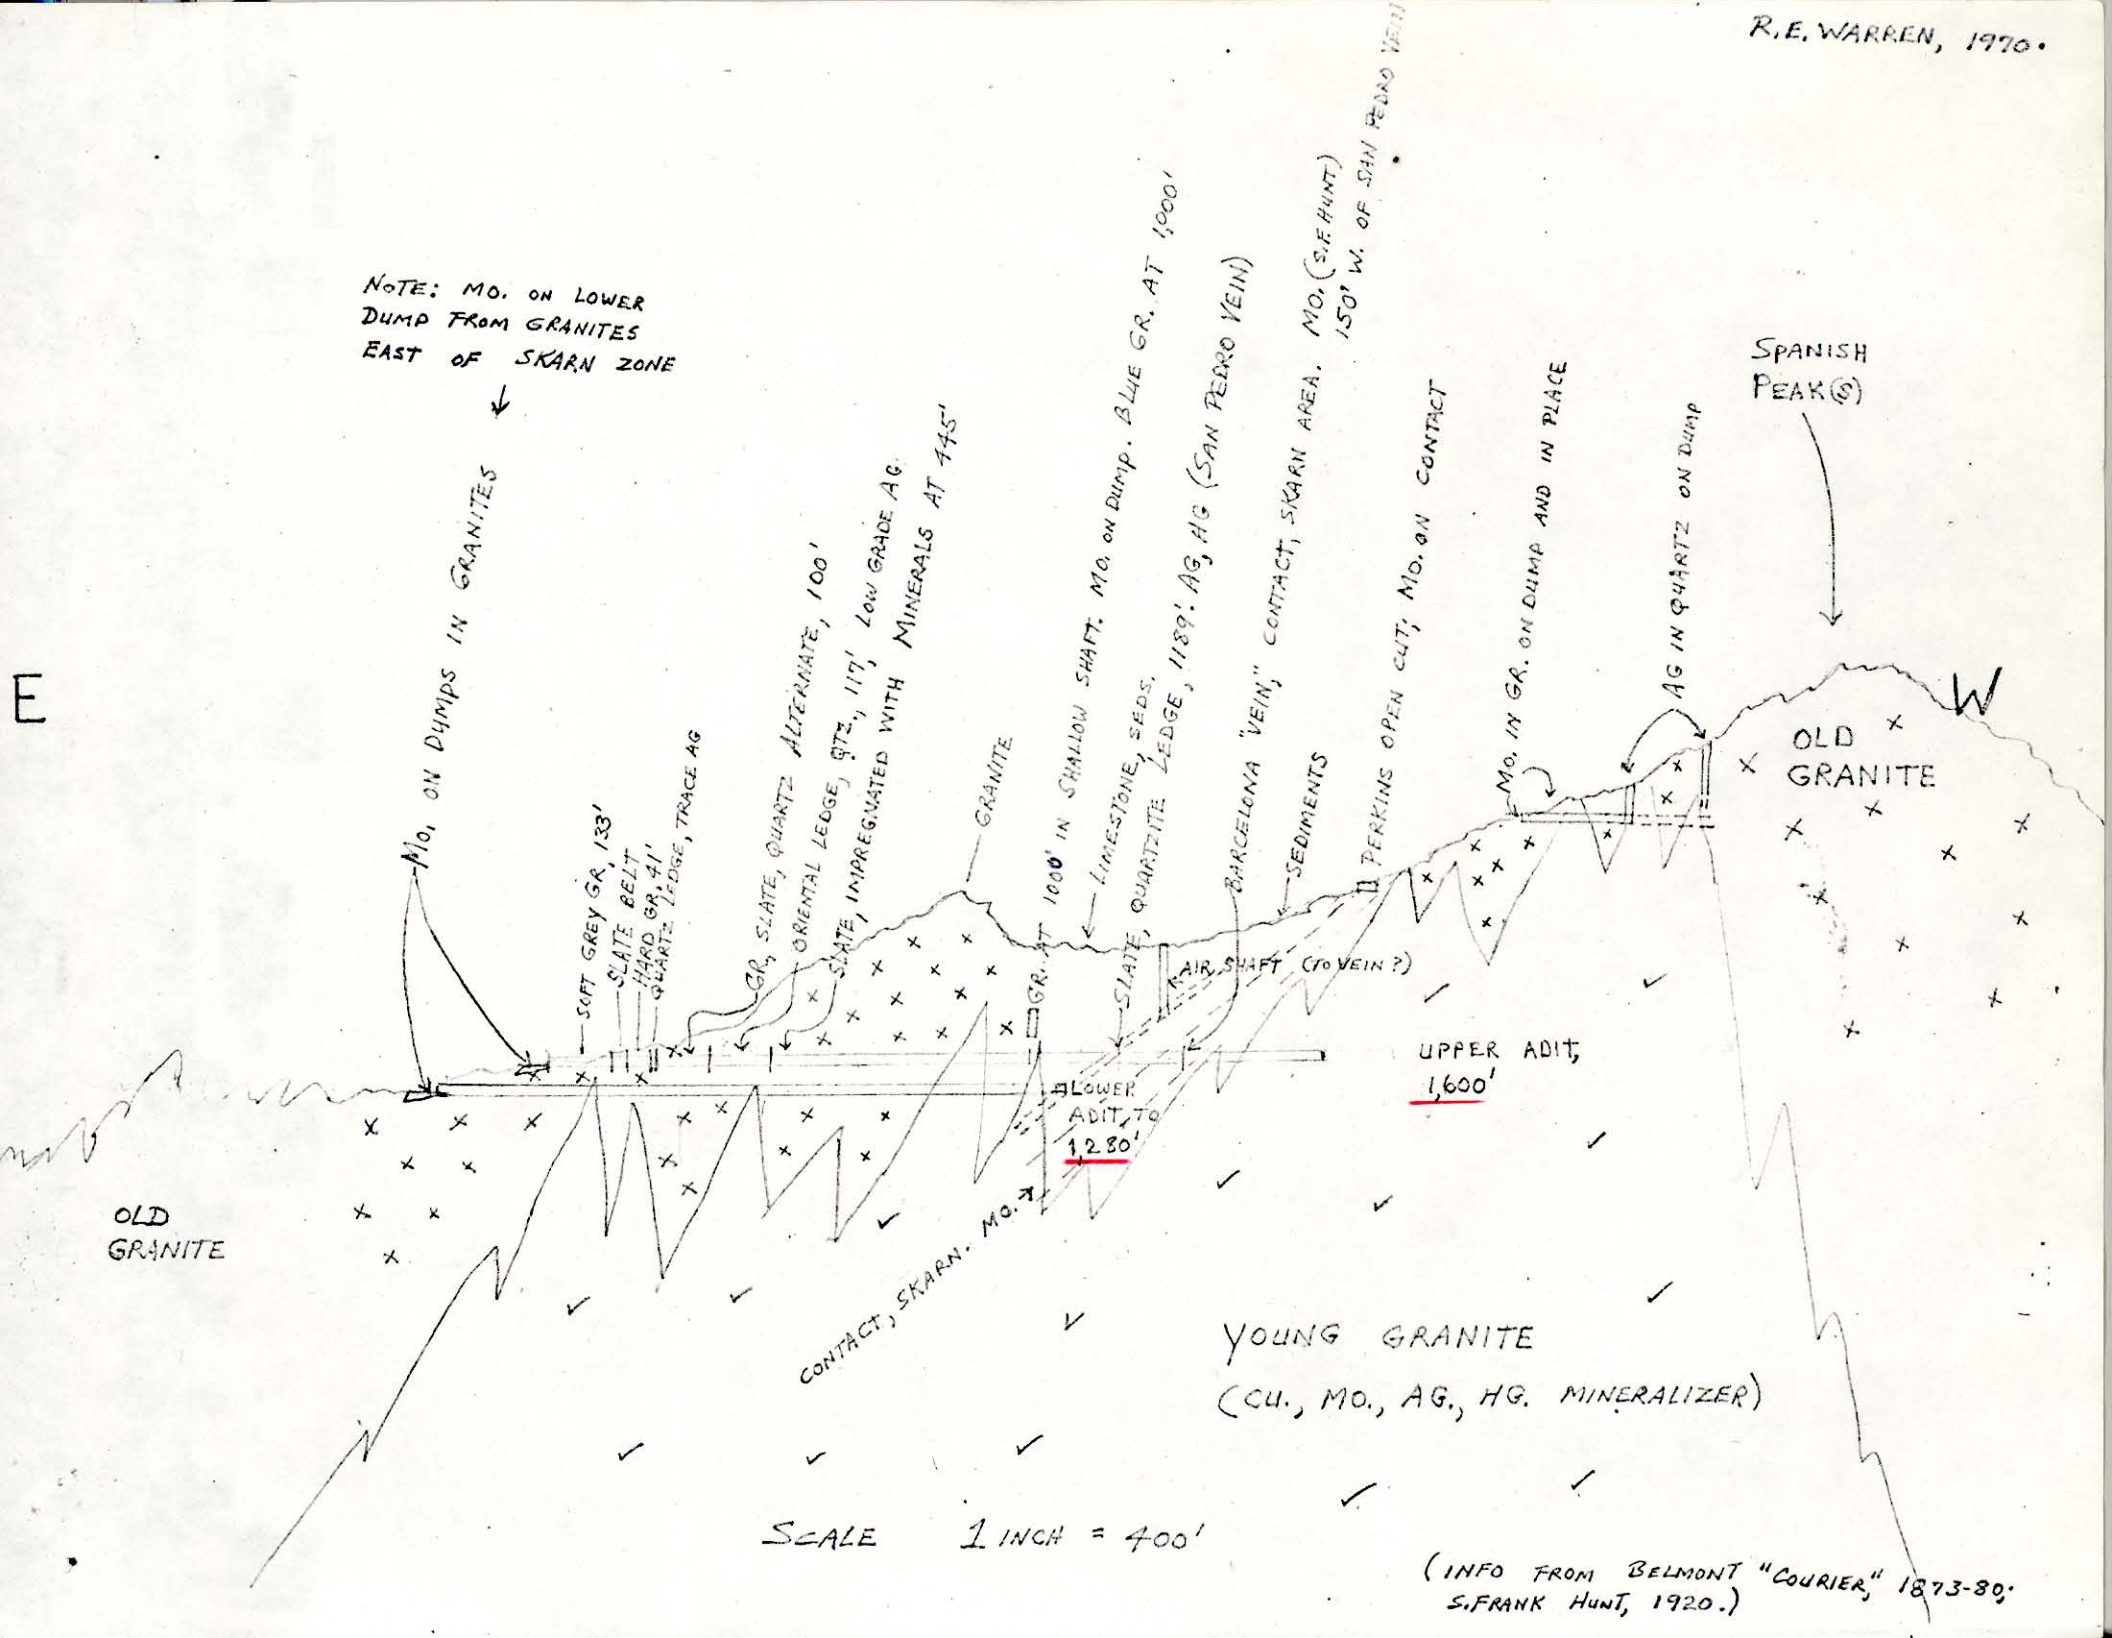 R.E. WARREN, 1970.
NOTE: MO. ON LOWER
DUMP FROM GRANITES
EAST OF SKARN ZONE
E
MO. ON DUMPS IN GRANITES
SOFT GREY GR, 133'
SLATE BELT
HARD GR, 41'
QUARTZ LEDGE, TRACE AG
GR, SLATE, QUARTZ ALTERNATE, 100'
ORIENTAL LEDGE, QTZ., 117', LOW GRADE AG.
SLATE, IMPREGNATED WITH MINERALS AT 445'
GRANITE
GR. AT 1000' IN SHALLOW SHAFT. MO. ON DUMP. BLUE GR. AT 1,000'
LIMESTONE, SEDS.
SLATE, QUARTZITE LEDGE, 1189'. AG, HG (SAN PEDRO VEIN)
BARCELONA "VEIN," CONTACT, SKARN AREA. MO. (S.F. HUNT)
150' W. OF SAN PEDRO VEIN
SEDIMENTS
PERKINS OPEN CUT; MO. ON CONTACT
MO. IN GR. ON DUMP AND IN PLACE
AG IN QUARTZ ON DUMP
SPANISH
PEAK(S)
W
OLD
GRANITE
AIR SHAFT (TO VEIN?)
UPPER ADIT,
1,600'
LOWER
ADIT, TO
1,280'
OLD
GRANITE
CONTACT, SKARN. MO.
YOUNG GRANITE
(CU., MO., AG., HG. MINERALIZER)
SCALE 1 INCH = 400'
(INFO FROM BELMONT "COURIER," 1873-80;
S.FRANK HUNT, 1920.)